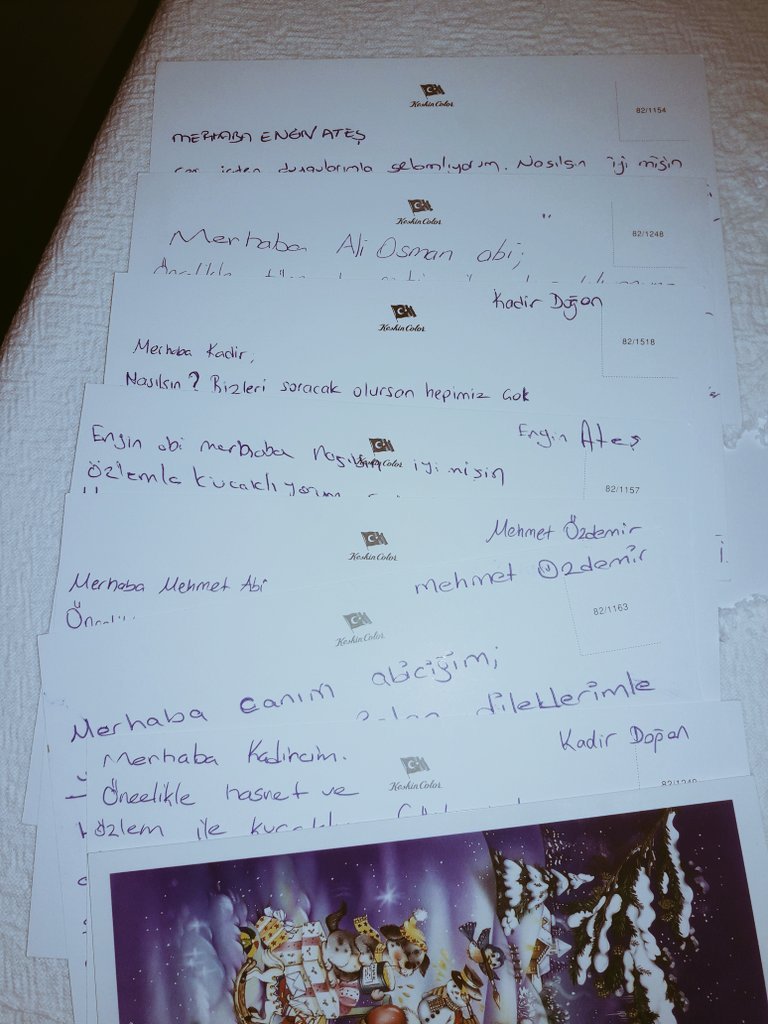 Keskin Color
82/1154
MERHABA ENGİN ATEŞ
selamlıyorum. Nasılsın iyi misin
Keskin Color
82/1248
Merhaba Ali Osman abi;
Keskin Color
Kadir Doğan
82/1518
Merhaba Kadir,
Nasılsın? Bizleri soracak olursan hepimiz çok
Keskin Color
Engin Ateş
Engin abi merhaba Nasılsın iyi misin
82/1157
özlemle kucaklıyorum
Keskin Color
Mehmet Özdemir
Merhaba Mehmet Abi
mehmet Özdemir
Keskin Color
82/1163
Merhaba canım abiciğim;
dileklerimle
Merhaba Kadircim.
Kadir Doğan
Keskin Color
Öncelikle hasret ve
özlem ile